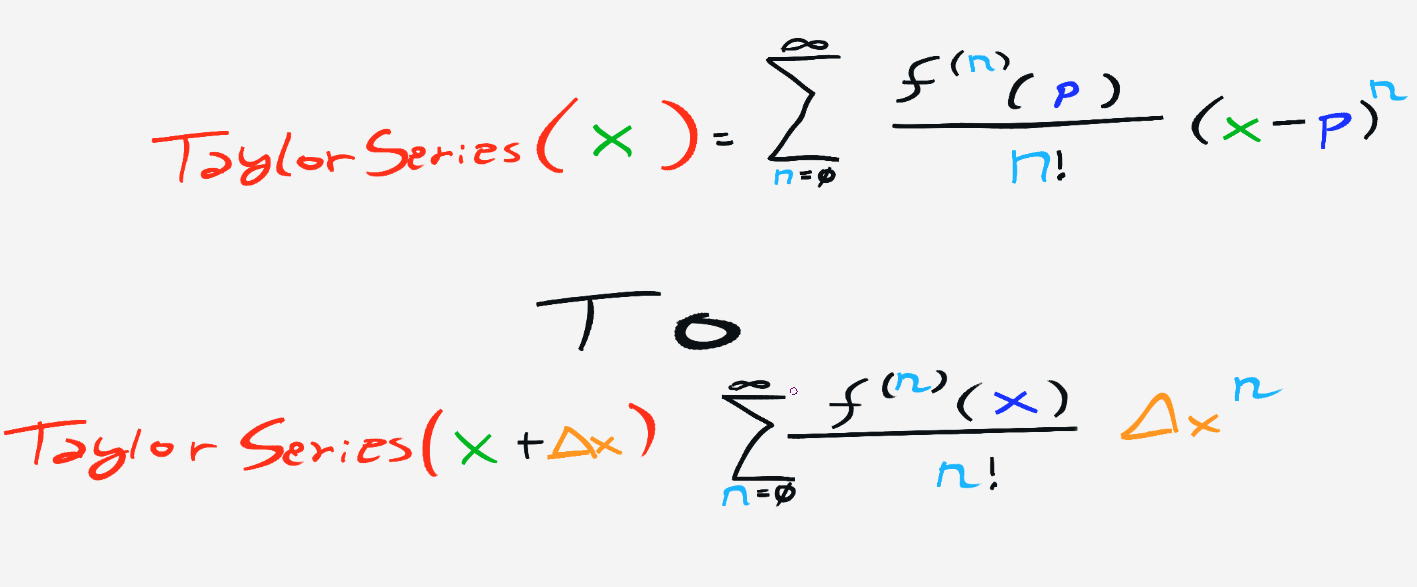 Taylor Series(x) = ∑_{n=0}^{∞} f^{(n)}(p) / n! (x-p)^n
To
Taylor Series(x+Δx) ∑_{n=0}^{∞} f^{(n)}(x) / n! Δx^n